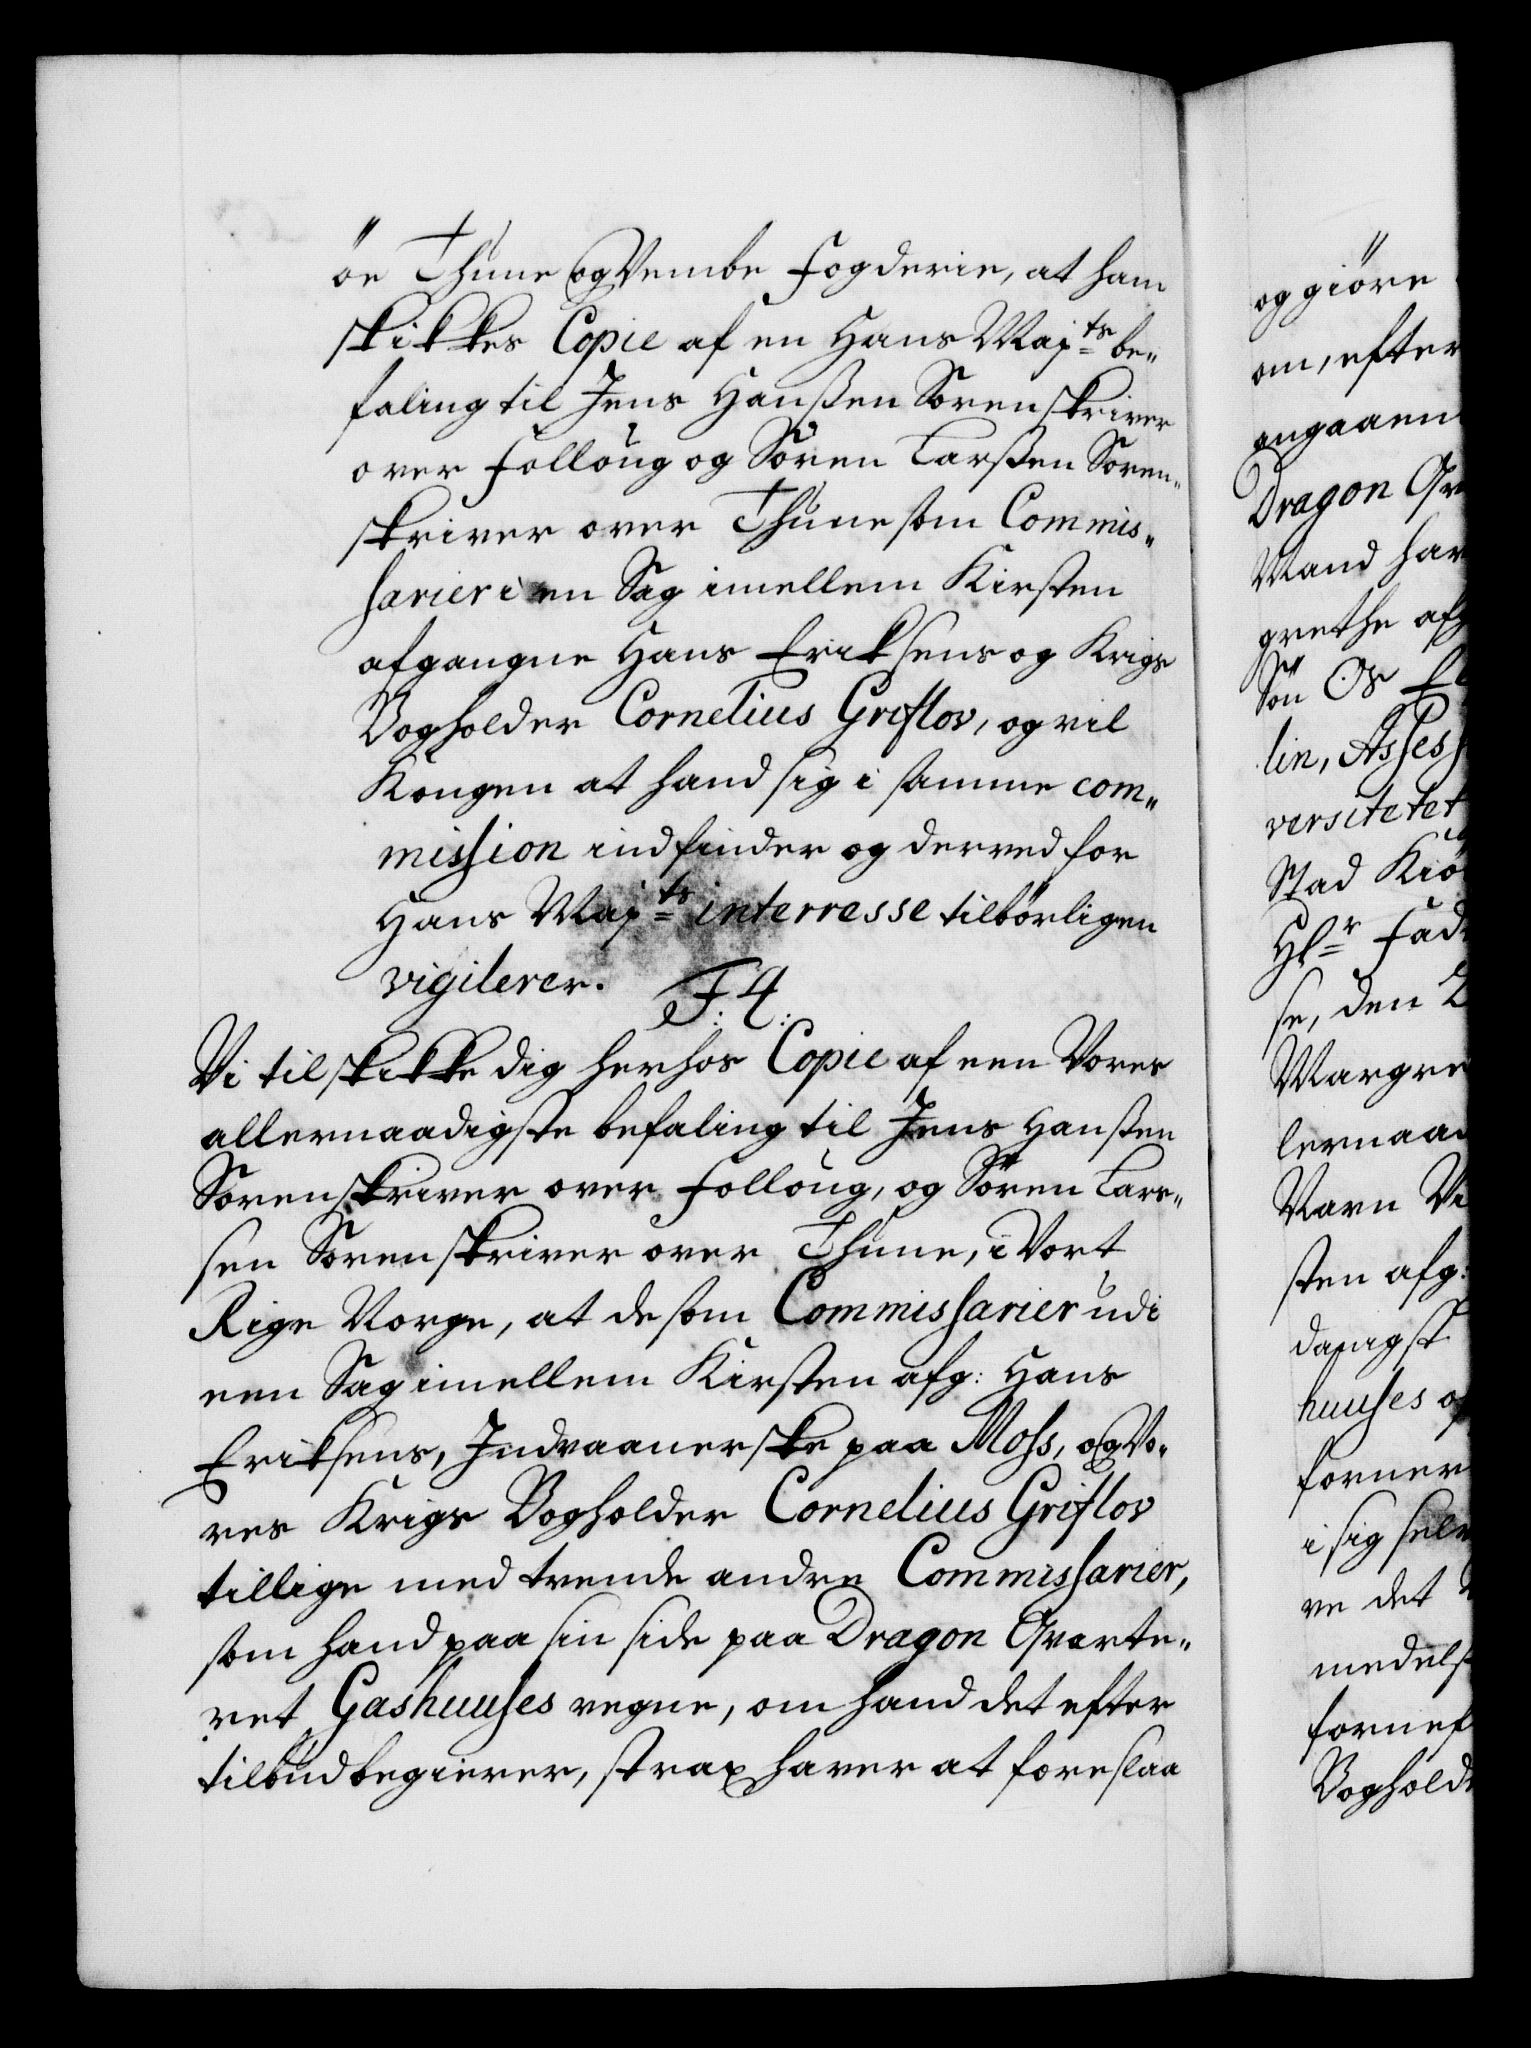 öe Thune og Vembe Fogderie, at ham
skikkes Copie af en Hans Maj:ts be„
faling til Jens Hanßen Sorenskriver
over Folloug og Sören Larßen Soren„
skriver over Thune som Commis„
sarier i en Sag imellem Kirsten
afgangne Hans Eriksens og Krigs
Bogholder Cornelius Griflov, og vil
Kongen at hand sig i samme com„
mission indfinder og derved for
Hans Maj:ts interresse tilbörligen
vigilerer.
F: 4:
Vi tilskikke dig herhos Copie af een Vores
allernaadigste befaling til Jens Hanßen
Sorenskriver over Folloug, og Sören Lars„
sen Sorenskriver over Thune, i Vort
Rige Norge, at de som Commissarier udi
een Sag imellem Kirsten afg: Hans
Eriksens, Indvaanerske paa Moss, og Vo„
res Krigs Bogholder Cornelius Griflov
tillige med tvende andre Commissarier,
som hand paa sin side paa Dragon Qvarte„
ret Gashuuses vegne, om hand det efter
tilbud begierer, strax haver at foreslaa
og giöre
om, efter
angaaen
Dragon Qv
Mand har
grethe afg
Sön
lin, Assess
versitetet
Stad Kiö
Hr Fad
se, den 2
Margre
lernaad
Navn Vi
sten afg:
daargst
huuses og
forner
i sig selv
ve det
medelst
fornef
Bogholde